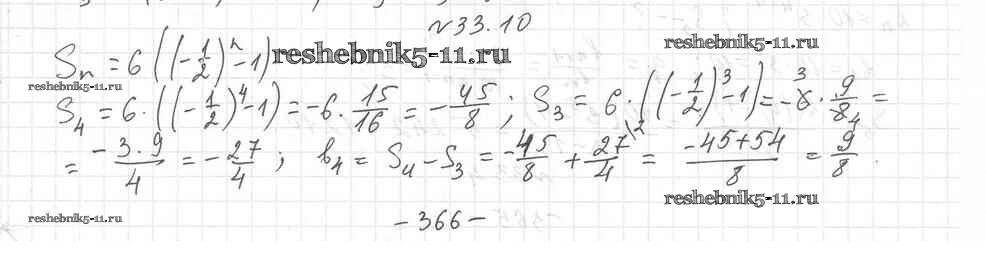 №33.10
Sₙ = 6((-1/2)ⁿ-1) reshebnik5-11.ru reshebnik5-11.ru
reshebnik5-11.ru
S₄ = 6·((-1/2)⁴-1) = -6·15/16 = -45/8; S₃ = 6·((-1/2)³-1) = -6³·9/8₄ =
= -3·9/4 = -27/4; b₄ = S₄-S₃ = -45/8 + 27\²/4 = -45+54/8 = 9/8.
reshebnik5-11.ru
reshebnik5-11.ru -366-